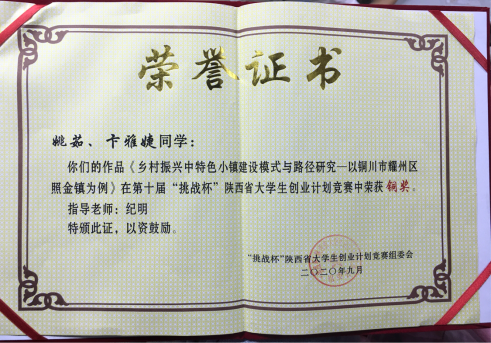 荣誉证书
姚茹、卞雅婕同学：
你们的作品《乡村振兴中特色小镇建设模式与路径研究—以铜川市耀州区
照金镇为例》在第十届“挑战杯”陕西省大学生创业计划竞赛中荣获铜奖。
指导老师：纪明
特颁此证，以资鼓励。
“挑战杯”陕西省大学生创业计划竞赛组委会
二〇二〇年九月